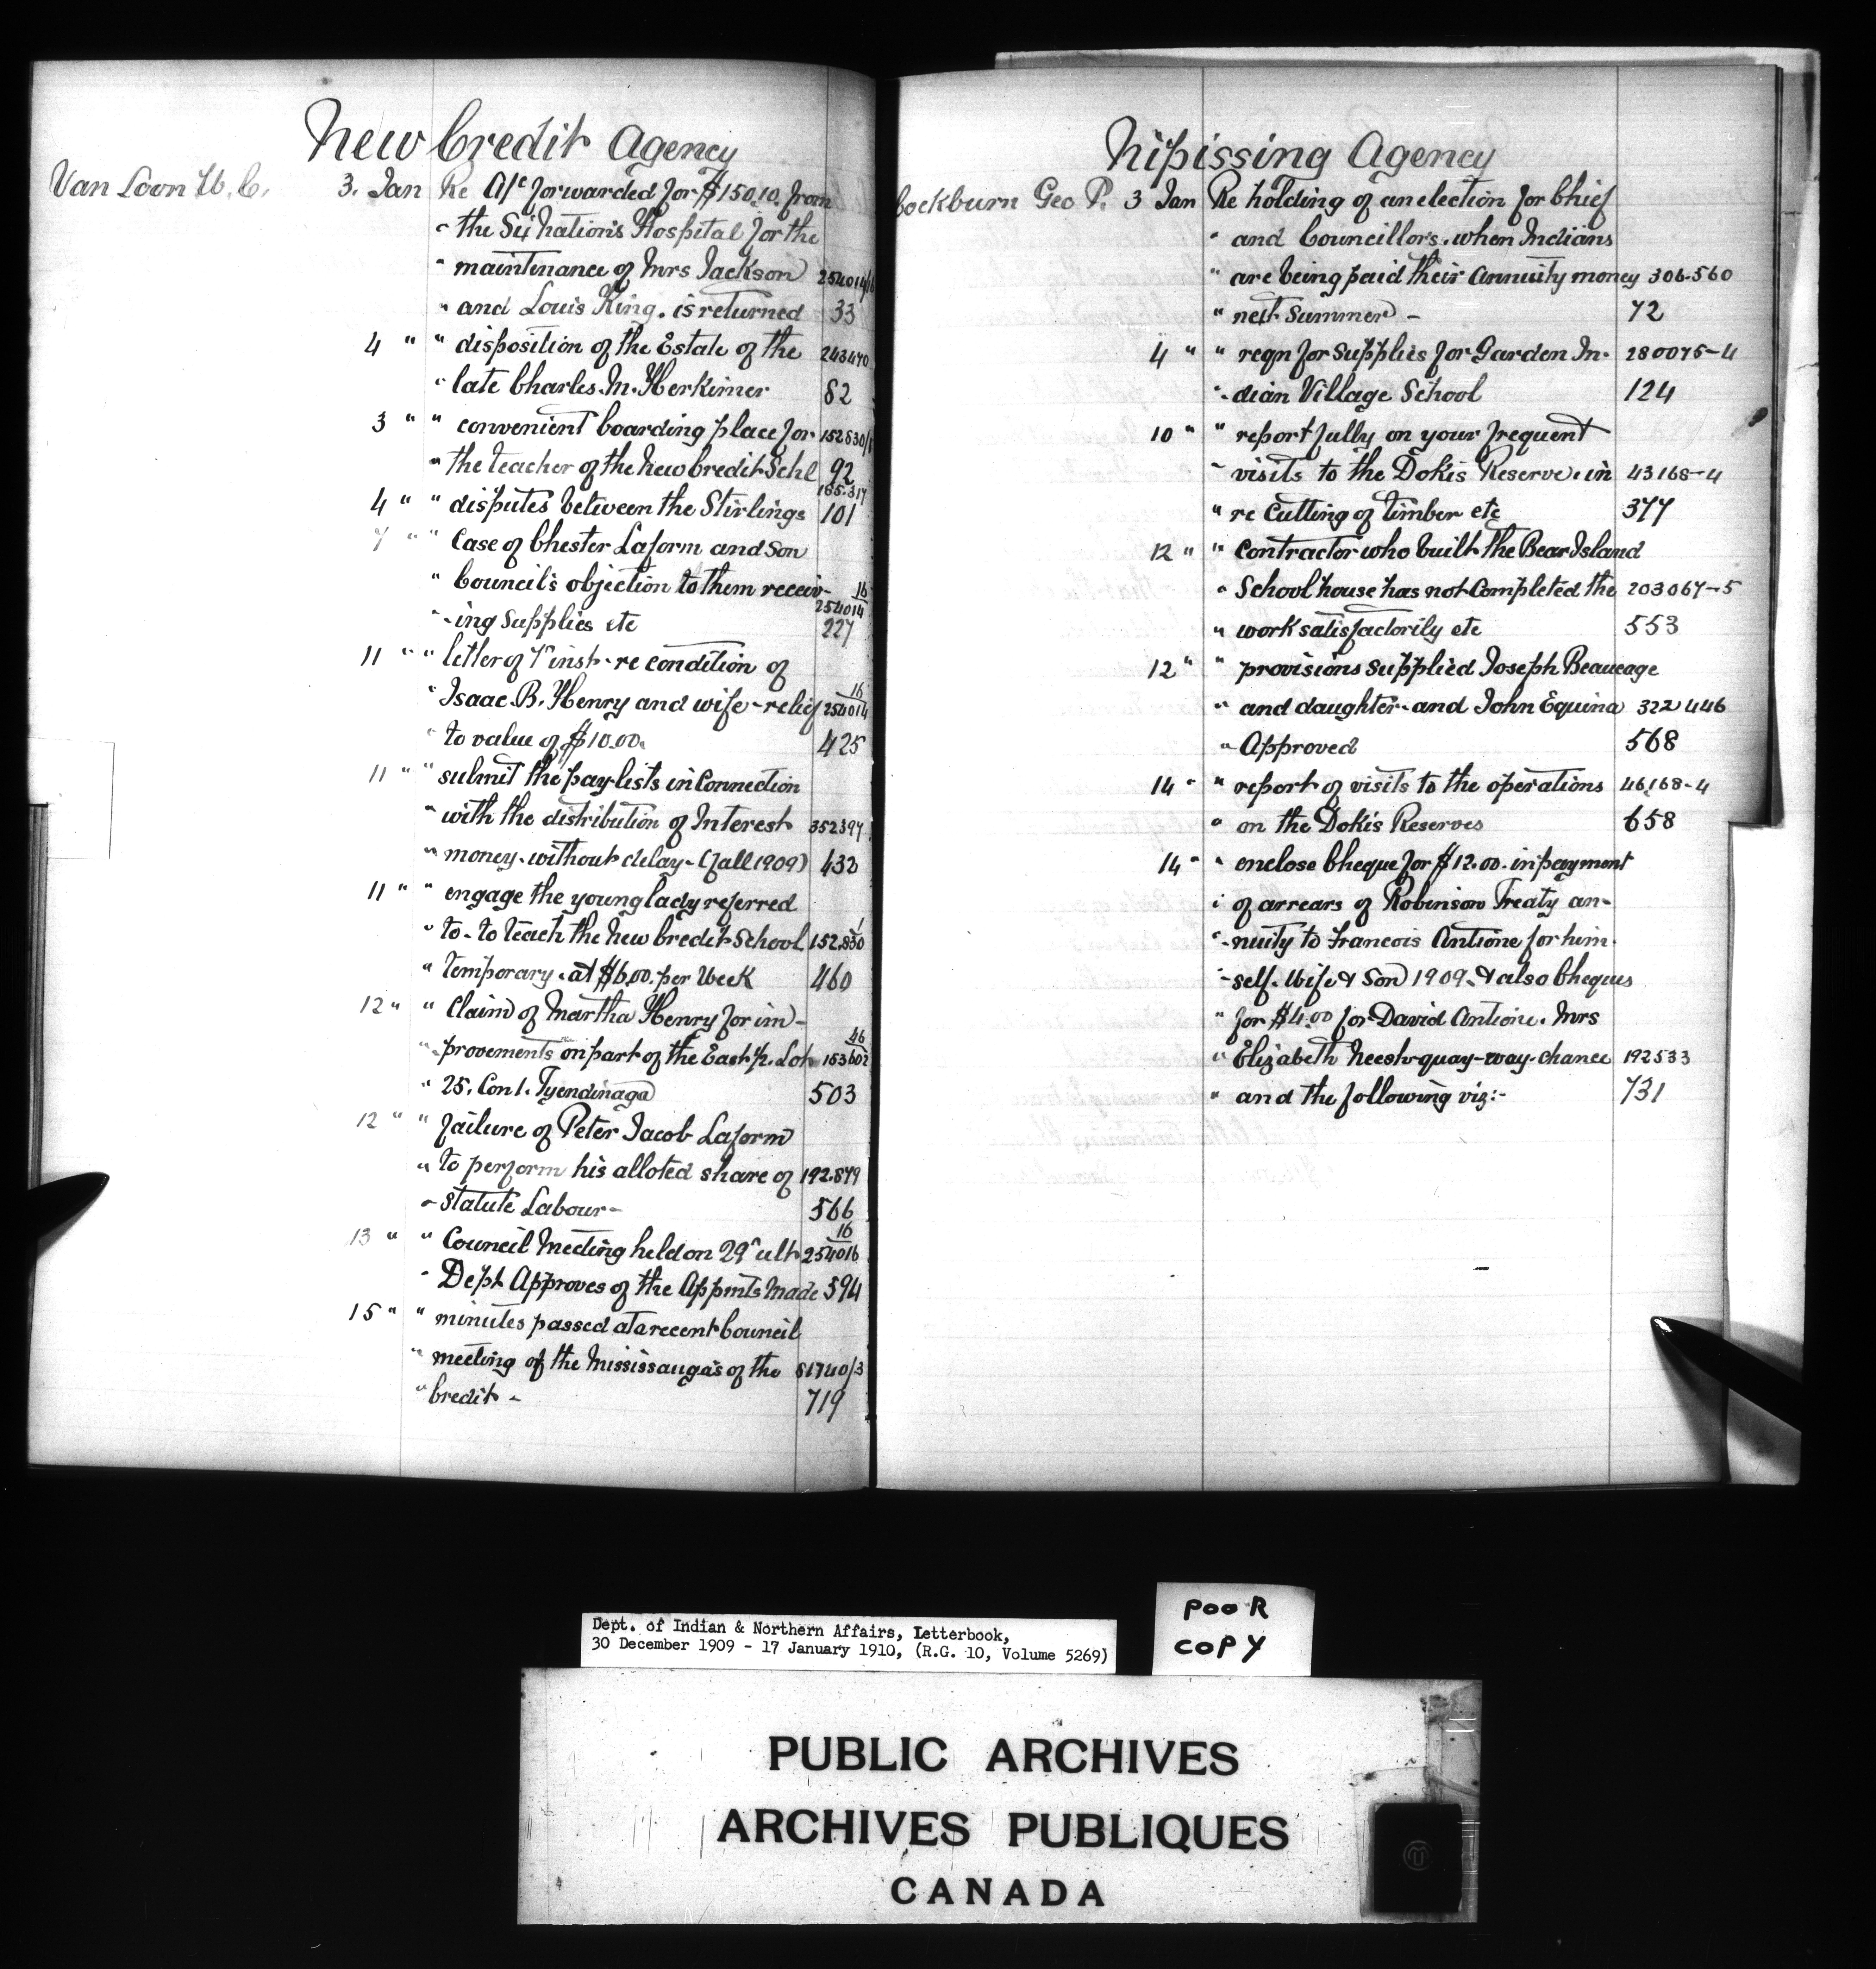 New Credit Agency
Van Loon W. C. 3. Jan Re A/c forwarded for $150.10. from
" the Six Nations Hospital for the
" maintenance of Mrs Jackson 254014/16
" and Louis King. is returned 33
4 " " disposition of the Estate of the 243470
" late Charles. M. Herkimer 82
3 " " convenient boarding place for 152830/1
" the teacher of the New Credit Schl 92
4 " " disputes between the Stirlings 165.317 101
7 " " Case of Chester Laform and Son
" Council's objection to them receiv-
" -ing Supplies etc 16/254014 227
11 " " letter of 7" inst - re condition of
" Isaac. B. Henry and wife - relief 16/254014
" to value of $10.00. 425
11 " " submit the pay-lists in Connection
" with the distribution of Interest 352397
" money. without delay - (fall 1909) 432
11 " " engage the young lady referred
" to - to teach the New Credit School 1/152.830
" temporary. at $6.00. per Week 460
12 " " Claim of Martha Henry for im-
" -provements on part of the East ½. Lot 46/153602
" 25. Con 1. Tyendinaga 503
12 " " failure of Peter Jacob Laform
" to perform his alloted share of 192.879
" Statute Labour - 566
13 " " Council Meeting held on 29" ult 16/254016
" Dept Approves of the Appmts Made 594
15 " " minutes passed at a recent Council
" meeting of the Mississauga's of the 81740/3
" Credit - 719
Nipissing Agency
Cockburn Geo P. 3 Jan Re holding of an election for Chief
" and Councillors. when Indians
" are being paid their Annuity money 306-560
" next Summer - 72
4 " " reqn for Supplies for Garden In- 280075-4
" -dian Village School 124
10 " " report fully on your frequent
" visits to the Dokis Reserve. in 43168-4
" re Cutting of timber etc 377
12 " " Contractor who built the Bear Island
" School house has not Completed the 203067-5
" work satisfactorily etc 553
12 " " provisions supplied Joseph Beaucage
" and daughter - and John Equina 322446
" Approved 568
14 " " report of visits to the operations 46168-4
" on the Dokis Reserves 658
14 " " enclose Cheque for $12.00. in payment
" of arrears of Robinson Treaty an-
" -nuity to Francois Antione for him-
" -self. Wife & Son 1909. & also Cheques
" for $4.00 for David Antione. Mrs
" Elizabeth Neesh-quay-way-chance 192533
" and the following viz:- 731
Dept. of Indian & Northern Affairs, Letterbook,
30 December 1909 - 17 January 1910, (R.G. 10, Volume 5269)
POOR
COPY
PUBLIC ARCHIVES
ARCHIVES PUBLIQUES
CANADA